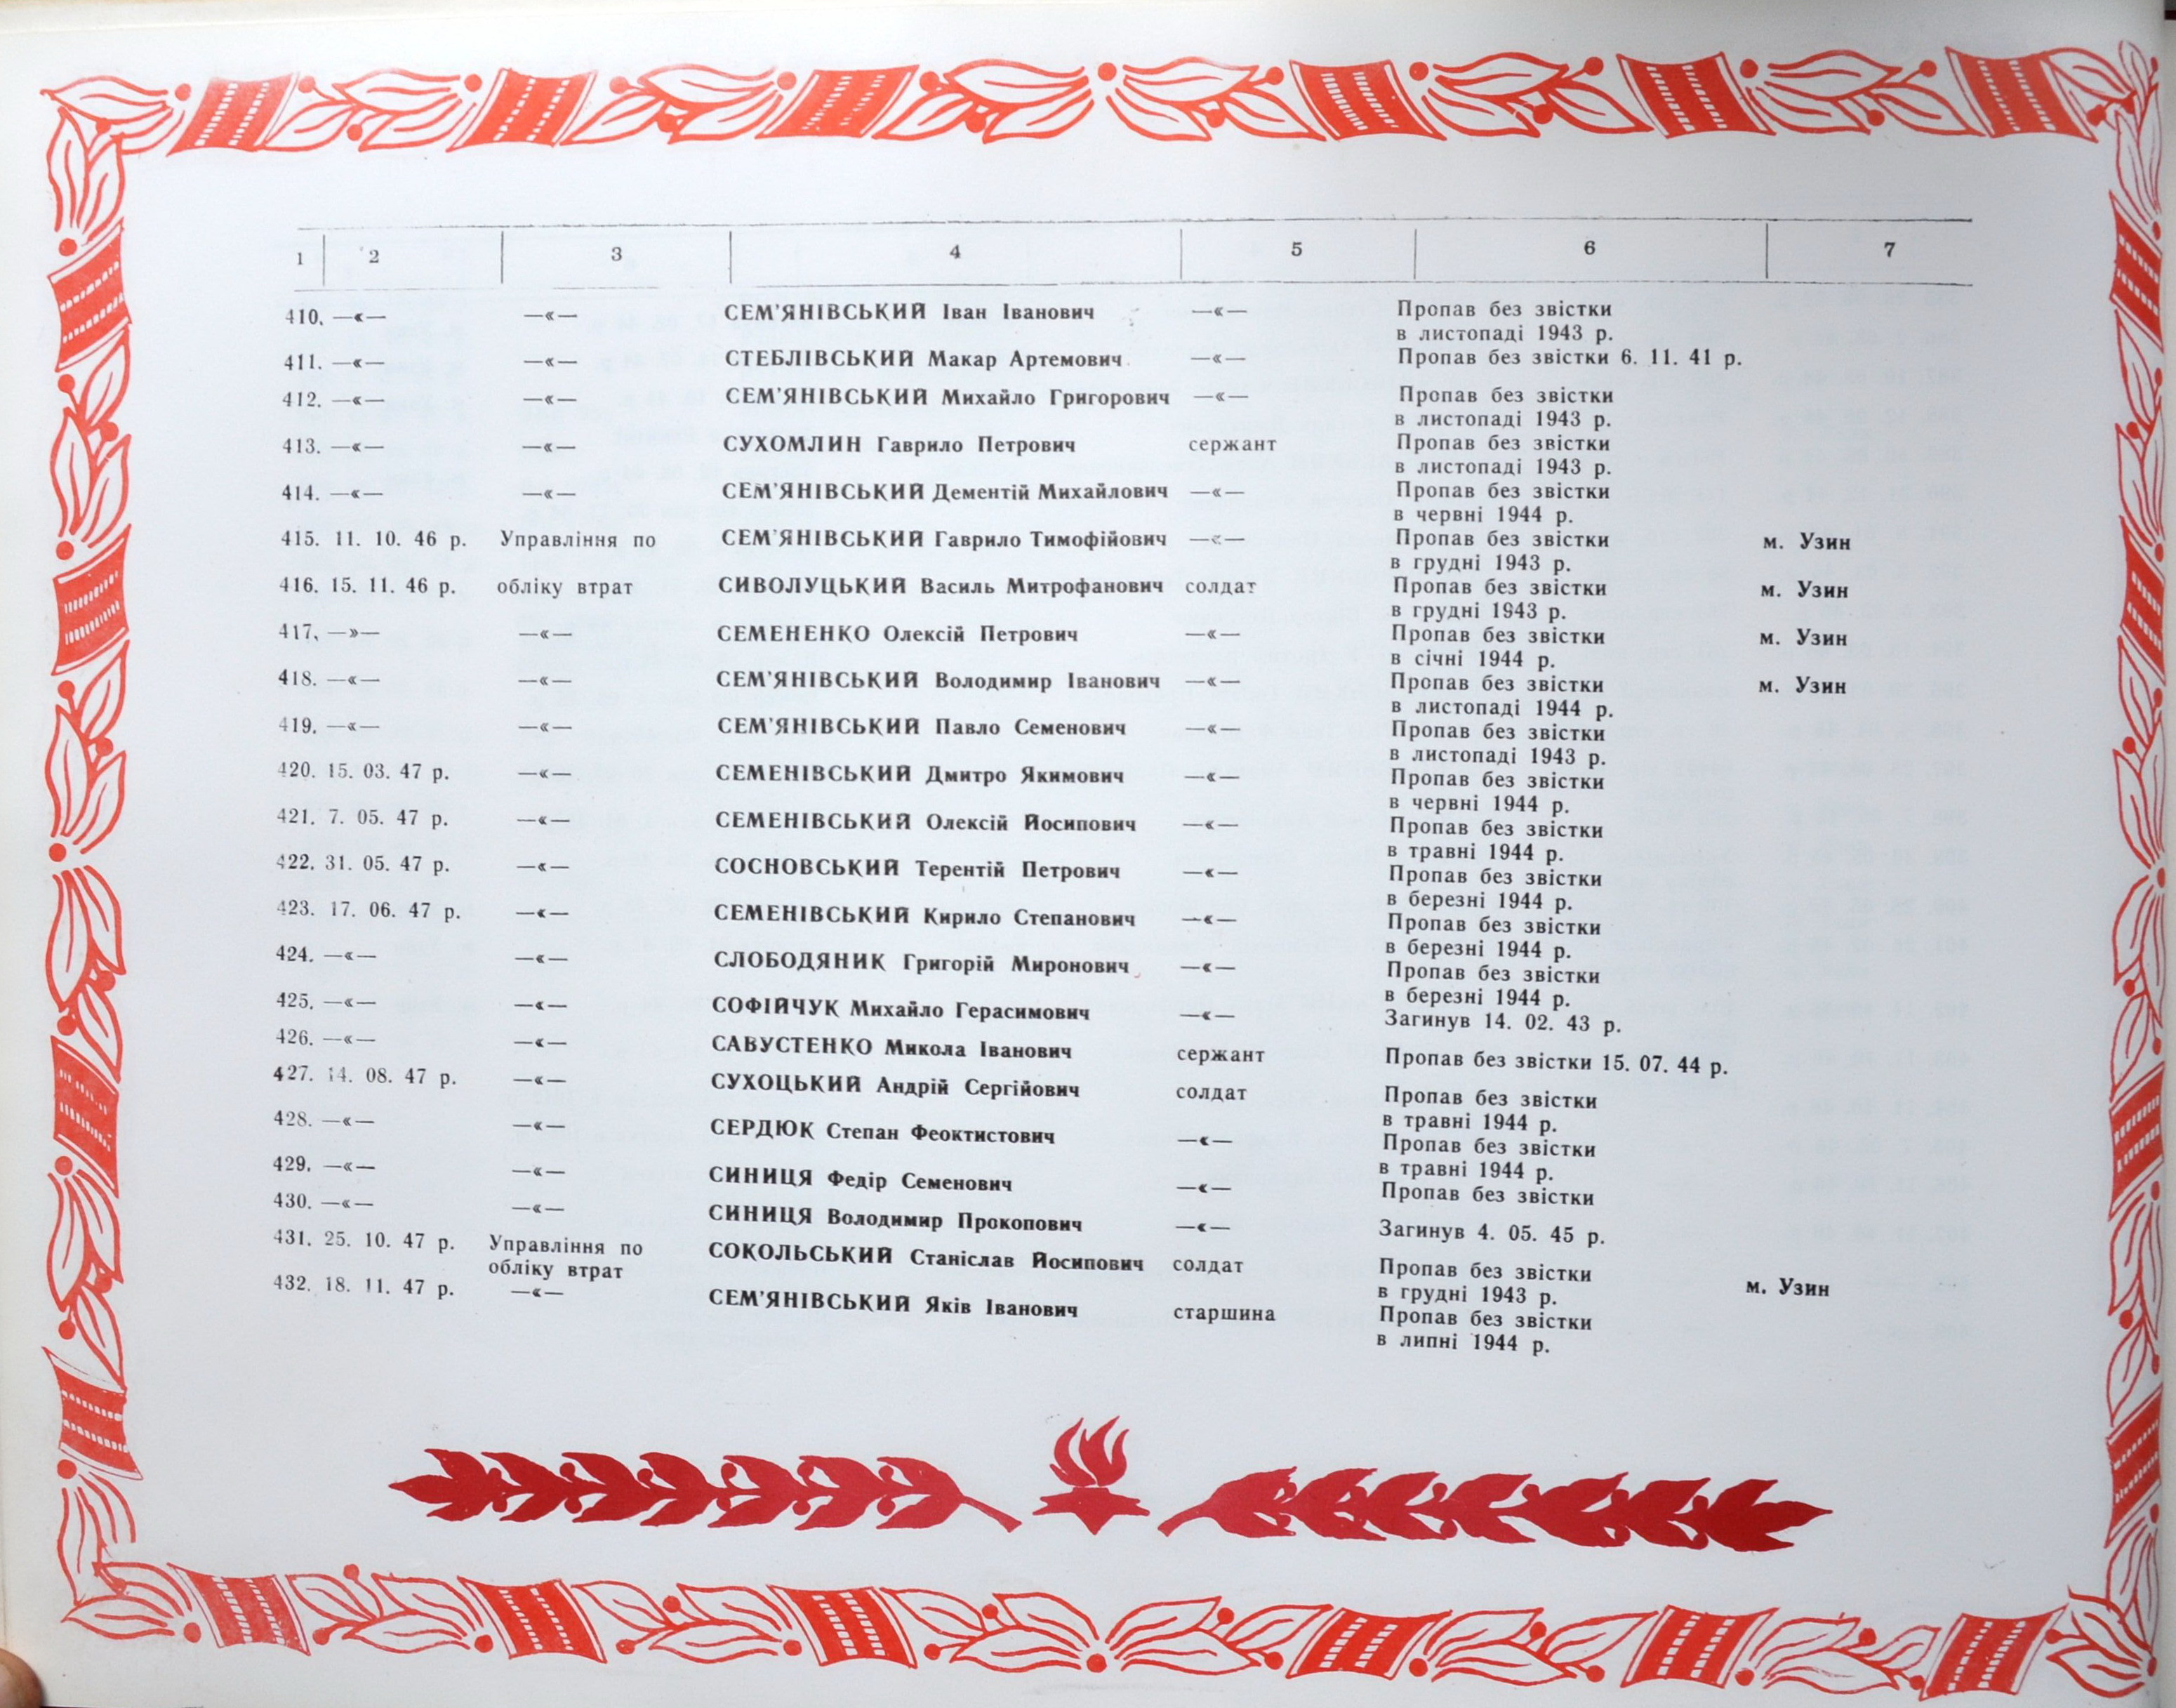 1 2 3 4 5 6 7
410. —«— —«— СЕМ'ЯНІВСЬКИЙ Іван Іванович —«— Пропав без звістки
в листопаді 1943 р.
411. —«— —«— СТЕБЛІВСЬКИЙ Макар Артемович —«— Пропав без звістки 6. 11. 41 р.
412. —«— —«— СЕМ'ЯНІВСЬКИЙ Михайло Григорович —«— Пропав без звістки
в листопаді 1943 р.
413. —«— —«— СУХОМЛИН Гаврило Петрович сержант Пропав без звістки
в листопаді 1943 р.
414. —«— —«— СЕМ'ЯНІВСЬКИЙ Дементій Михайлович —«— Пропав без звістки
в червні 1944 р.
415. 11. 10. 46 р. Управління по СЕМ'ЯНІВСЬКИЙ Гаврило Тимофійович —«— Пропав без звістки м. Узин
в грудні 1943 р.
416. 15. 11. 46 р. обліку втрат СИВОЛУЦЬКИЙ Василь Митрофанович солдат Пропав без звістки м. Узин
в грудні 1943 р.
417. —»— —«— СЕМЕНЕНКО Олексій Петрович —«— Пропав без звістки м. Узин
в січні 1944 р.
418. —«— —«— СЕМ'ЯНІВСЬКИЙ Володимир Іванович —«— Пропав без звістки м. Узин
в листопаді 1944 р.
419. —«— —«— СЕМ'ЯНІВСЬКИЙ Павло Семенович —«— Пропав без звістки
в листопаді 1943 р.
420. 15. 03. 47 р. —«— СЕМЕНІВСЬКИЙ Дмитро Якимович —«— Пропав без звістки
в червні 1944 р.
421. 7. 05. 47 р. —«— СЕМЕНІВСЬКИЙ Олексій Йосипович —«— Пропав без звістки
в травні 1944 р.
422. 31. 05. 47 р. —«— СОСНОВСЬКИЙ Терентій Петрович —«— Пропав без звістки
в березні 1944 р.
423. 17. 06. 47 р. —«— СЕМЕНІВСЬКИЙ Кирило Степанович —«— Пропав без звістки
в березні 1944 р.
424. —«— —«— СЛОБОДЯНИК Григорій Миронович —«— Пропав без звістки
в березні 1944 р.
425. —«— —«— СОФІЙЧУК Михайло Герасимович —«— Загинув 14. 02. 43 р.
426. —«— —«— САВУСТЕНКО Микола Іванович сержант Пропав без звістки 15. 07. 44 р.
427. 14. 08. 47 р. —«— СУХОЦЬКИЙ Андрій Сергійович солдат Пропав без звістки
в травні 1944 р.
428. —«— —«— СЕРДЮК Степан Феоктистович —«— Пропав без звістки
в травні 1944 р.
429. —«— —«— СИНИЦЯ Федір Семенович —«— Пропав без звістки
430. —«— —«— СИНИЦЯ Володимир Прокопович —«— Загинув 4. 05. 45 р.
431. 25. 10. 47 р. Управління по СОКОЛЬСЬКИЙ Станіслав Йосипович солдат Пропав без звістки м. Узин
обліку втрат в грудні 1943 р.
432. 18. 11. 47 р. —«— СЕМ'ЯНІВСЬКИЙ Яків Іванович старшина Пропав без звістки
в липні 1944 р.